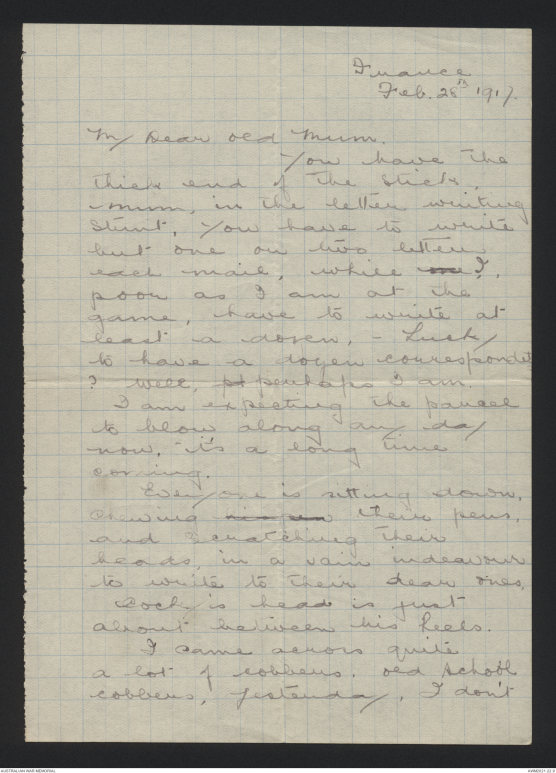 France
Feb. 28th 1917.
My Dear old Mum.
You have the
thick end of the stick,
mum, in the letter writing
stunt. You have to write
but one or two letters
each mail, while I,
poor as I am at the
game, have to write at
least a dozen, - Lucky
to have a dozen correspondets
? well, perhaps I am.
I am expecting the parcel
to blow along any day
now, it's a long time
coming.
Everyone is sitting down,
chewing their pens,
and scratching their
heads, in a vain indeavour
to write to their dear ones.
Cocky's head is just
about between his heels.
I came across quite
a lot of cobbers, old school
cobbers, yesterday, I don't
AUSTRALIAN WAR MEMORIAL